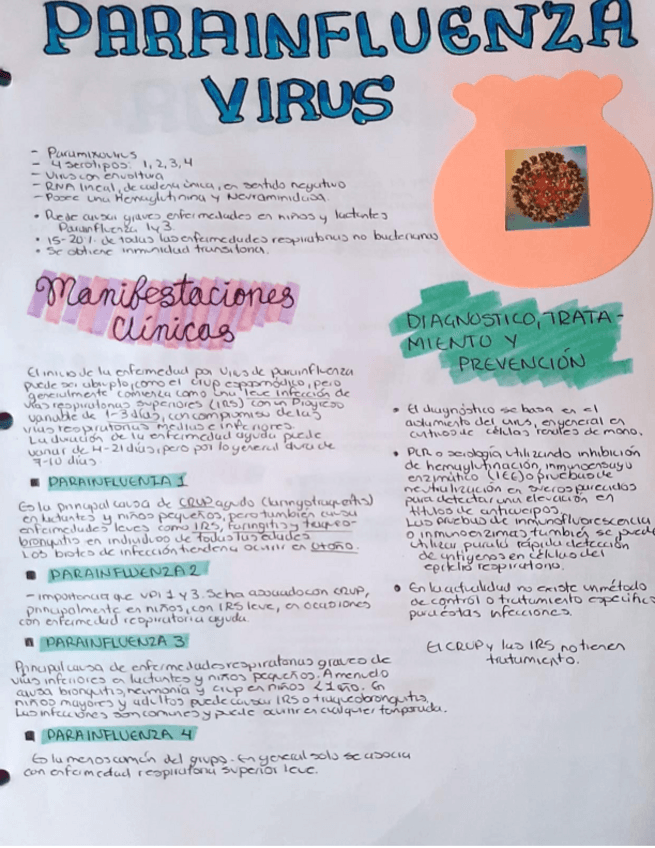 PARAINFLUENZA
VIRUS
- Paramixovirus
- 4 serotipos: 1, 2, 3, 4
- Virus con envoltura
- RNA lineal, de cadena única, en sentido negativo
- Posee una Hemaglutinina y Neuraminidasa.
• Puede causar graves enfermedades en niños y lactantes
Parainfluenza 1y3.
• 15-20% de todas las enfermedades respiratorias no bacterianas
• Se obtiene inmunidad transitoria.
Manifestaciones
Clínicas
El inicio de la enfermedad por virus de parainfluenza
puede ser abrupto, como el crup espasmódico, pero
generalmente comienza como una leve infección de
vías respiratorias superiores (IRS) con un progreso
variable de 1-3 días, con compromiso de las
vías respiratorias medias e inferiores.
La duración de la enfermedad aguda puede
variar de 4-21 días, pero por lo general dura de
7-10 días.
■ PARAINFLUENZA 1
Es la principal causa de CRUP agudo (laringotraqueitis)
en lactantes y niños pequeños, pero también causa
enfermedades leves como IRS, faringitis y traqueo-
bronquitis en individuos de todas las edades.
Los brotes de infección tienden a ocurrir en otoño.
■ PARAINFLUENZA 2
- importancia que VPI 1 y 3. Se ha asociado con CRUP,
principalmente en niños, con IRS leve, en ocasiones
con enfermedad respiratoria aguda.
■ PARAINFLUENZA 3
Principal causa de enfermedades respiratorias graves de
vías inferiores en lactantes y niños pequeños. A menudo
causa bronquitis, neumonía y crup en niños <1 año. En
niños mayores y adultos puede causar IRS o traqueobronquitis.
Las infecciones son comunes y puede ocurrir en cualquier temporada.
■ PARAINFLUENZA 4
Es la menos común del grupo. En general solo se asocia
con enfermedad respiratoria superior leve.
DIAGNOSTICO, TRATA-
MIENTO Y
PREVENCIÓN
• El diagnóstico se basa en el
aislamiento del virus, en general en
cultivos de células renales de mono.
• PCR o serología utilizando inhibición
de hemaglutinación, inmunoensayo
enzimático (IEE) o pruebas de
neutralización en sueros pareados
para detectar una elevación en
títulos de anticuerpos.
Las pruebas de inmunofluorescencia
o inmunoenzimas también se puede
utilizar para la rápida detección
de antígenos en células del
epitelio respiratorio.
• En la actualidad no existe un método
de control o tratamiento específic
para estas infecciones.
El CRUP y las IRS no tienen
tratamiento.